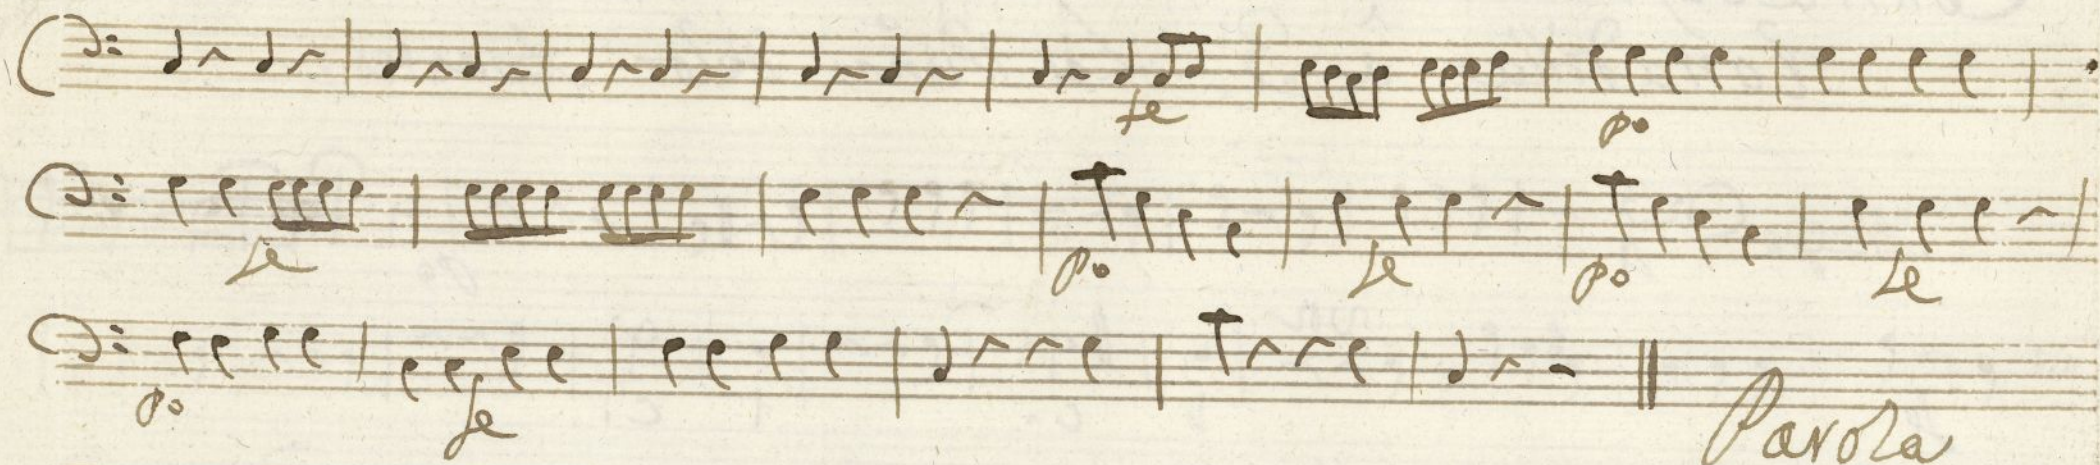 fe po
fe po fe po fe
po fe
Parola